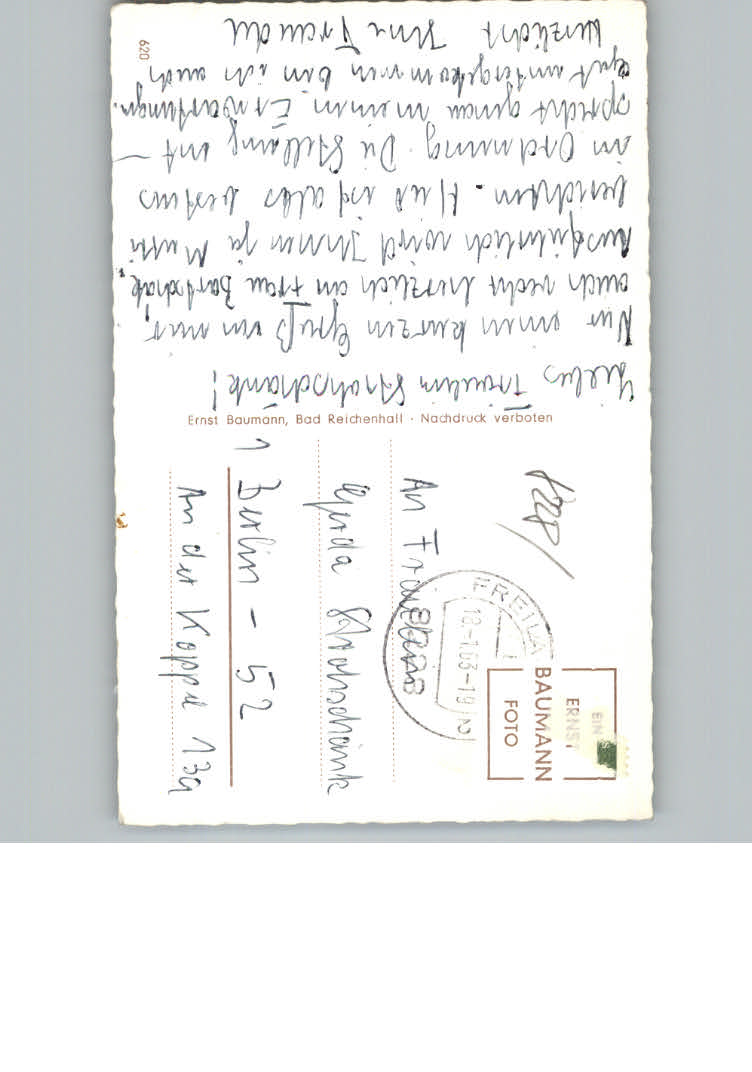 Liebes Fräulein Strohschänk!
Nur einen kurzen Gruß von mir,
auch recht herzlich an Frau Bartschat!
Ausführlich wird Ihnen ja Mutti
berichten. Hier ist alles bestens
in Ordnung. Die Stellung ent-
spricht genau meinen Erwartungen.
Gut untergekommen bin ich auch
Herzlichst Ihre Traudel
620
Ernst Baumann, Bad Reichenhall · Nachdruck verboten
EIN
ERNST
BAUMANN
FOTO
FREILA
18.-1.63-19
8228
8228/
An Fräulein
Gerda Strohschänk
1 Berlin - 52
An der Koppel 13a